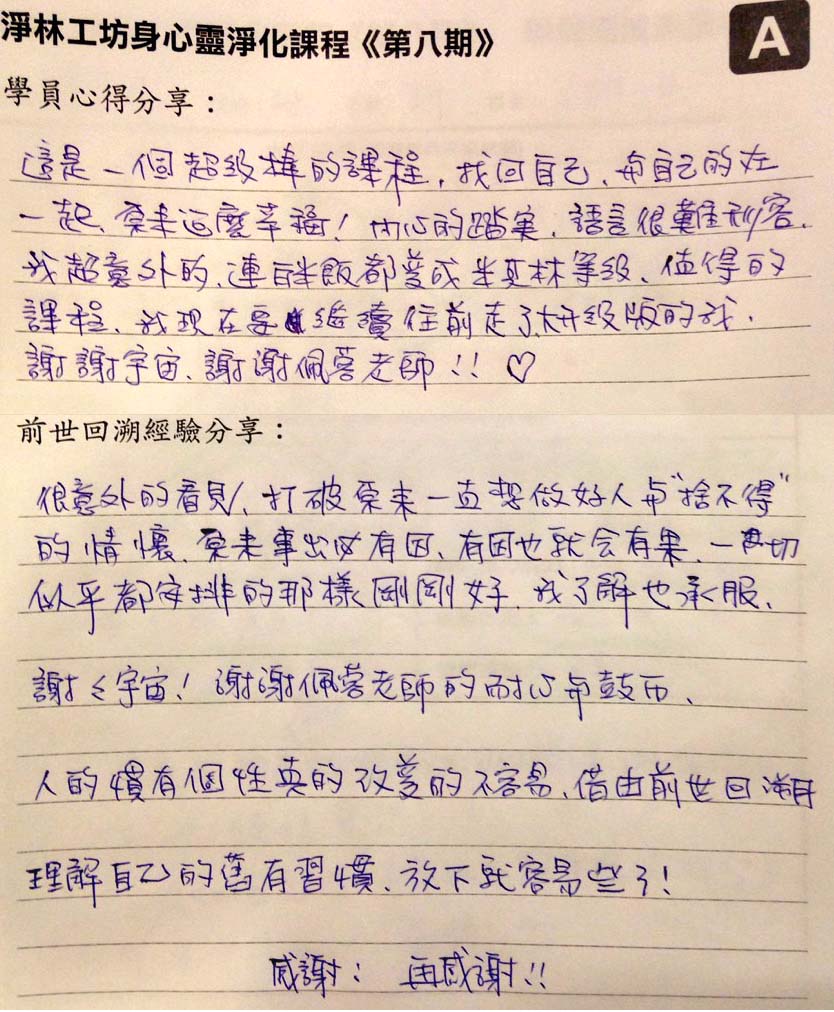 淨林工坊身心靈淨化課程《第八期》
A
學員心得分享：
這是一個超級棒的課程，找回自己、與自己的在
一起、原來這麼幸福！內心的踏實、語言很難形容、
我超意外的、連白米飯都變成米其林等級、值得的
課程、我現在要繼續往前走了,大升級版的我．
謝謝宇宙、謝謝佩蓉老師！！♡
前世回溯經驗分享：
很意外的看見、打破原來一直想做好人與"捨不得"
的情懷、原來事出必有因、有因也就会有果、一切
似乎都安排的那樣剛剛好、我了解也承服、
謝々宇宙！謝謝佩蓉老師的耐心與鼓舞、
人的慣有個性真的改變的不容易、借由前世回溯
理解自己的舊有習慣、放下就容易些了！
感謝： 再感謝！！